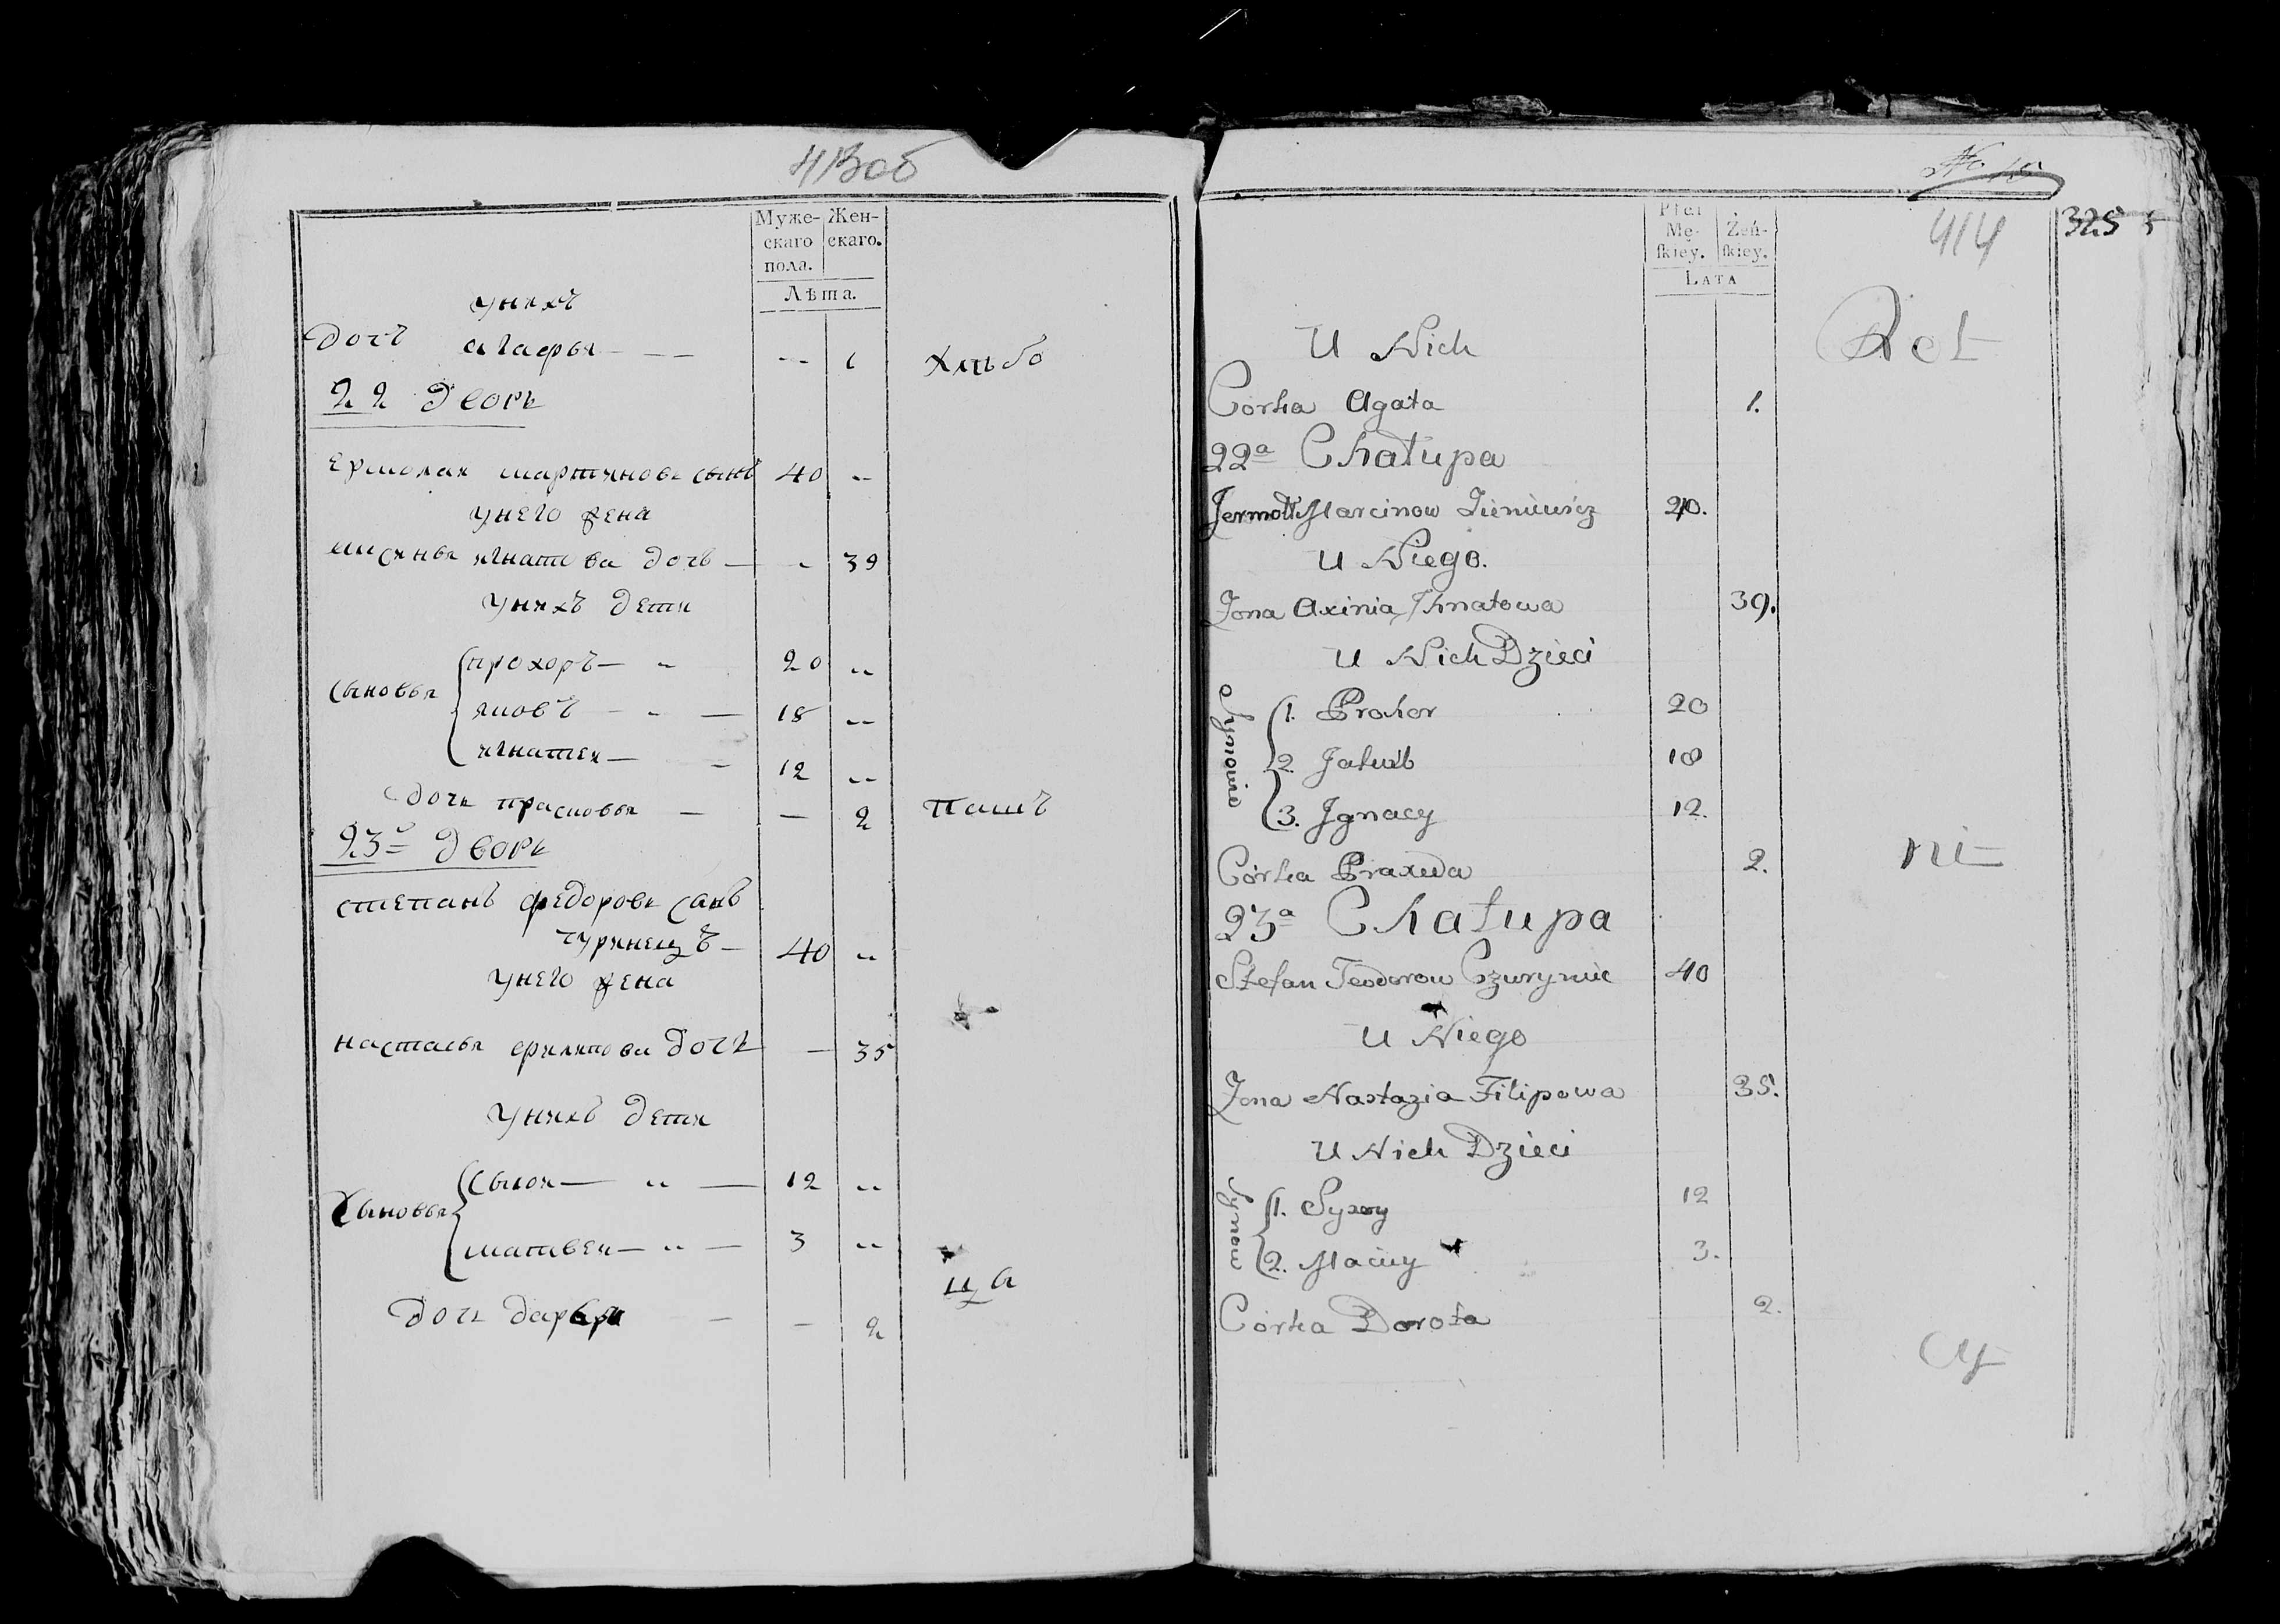 413об
Муже- Жен-
скаго скаго.
пола.
Лѣта.
унихъ
дочь агафья — — -- 1 Хлѣбо
22 дворъ
Ермолаи мартиновъ сынъ 40 --
унего жена
ксинья игнатова дочь — - 39
унихъ дети
сыновья прохоръ — - 20 --
яковъ — - — 18 --
игнатеи — - 12 --
дочь прасковья — — 2 пашъ
23й дворъ
степанъ федоровъ сынъ
чуринецъ — 40 --
унего жена
настасья филипова дочь — 35
унихъ дети
сыновья сысои — -- — 12 --
матвеи — -- — 3 --
ца
дочь дарья — — 2
No 15
414
325
Płci
Mę- Żeń-
ſkiey. ſkiey.
LATA
U Nich
Córka Agata 1.
22a Chałupa
Jermołł Marcinow Zieniewicz 40.
U Niego.
Żona Axinia Ihnatowa 39.
U Nich Dzieci
Synowie 1. Prohor 20
2. Jakub 18
3. Jgnacy 12.
Córka Praxeda 2.
23a Chałupa
Stefan Teodorow Czuryniec 40
U Niego
Żona Nastazia Filipowa 35.
U Nich Dzieci
Synow 1. Sysoy 12
2. Maciey 3.
Córka Dorota 2.